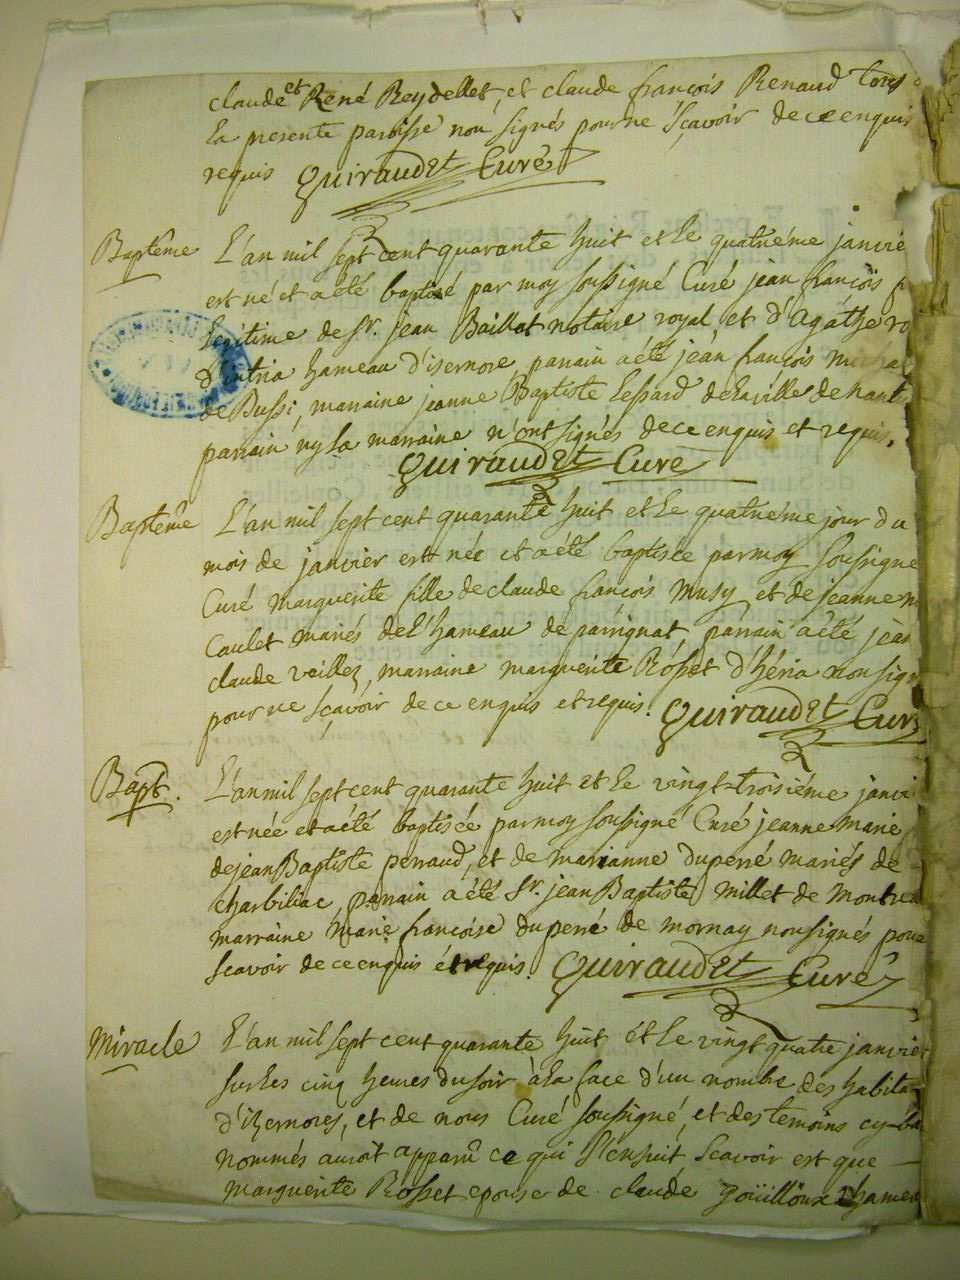 claude et René Reydellet, et claude françois Renaud tous
la presente paroisse non signés pour ne sçavoir de ce enquis
requis Guiraudet Curé
Baptême L'an mil sept cent quarante huit et le quatriéme janvie
est né et a été baptisé par moy soussigné Curé jean françois
legitime de Sr. jean Baillat notaire royal, et d'Agâthe
d'intria hameau d'isernore, parrain a été jean françois
de Bussi, marraine jeanne Baptiste Lessard de la ville de nant
parrain ny la marraine n'ont signés de ce enquis et requis.
Guiraudet Curé
Baptême L'an mil sept cent quarante huit et le quatriéme jour du
mois de janvier est née et a été baptisée par moy soussigné
Curé marguerite fille de claude françois Musy et de jeanne
Caulet mariés de l'hameau de perignat, parrain a été jean
claude veillez, marraine marguerite Rosset d'héria non sign
pour ne sçavoir de ce enquis et requis. Guiraudet Cure
Bapt. L'an mil sept cent quarante huit et le vingt-troisiéme janvi
est née et a été baptisée par moy soussigné Curé jeanne marie
de jean Baptiste perraud, et de marianne duperré mariés de
charbiliac, parrain a été Sr. jean Baptiste millet de Montrea
marraine marie françoise duperré de mornay non signés pour
scavoir de ce enquis et requis. Guiraudet Curé
Miracle L'an mil sept cent quarante huit et le vingt quatre janvier
sur les cinq heures du soir à la face d'un nombre des habita
d'izernores, et de nous Curé soussigné, et des temoins cy-ba
nommés auroit apparu ce qui s'ensuit scavoir est que
marguerite Rosset epouse de claude goüilloux l'hamea